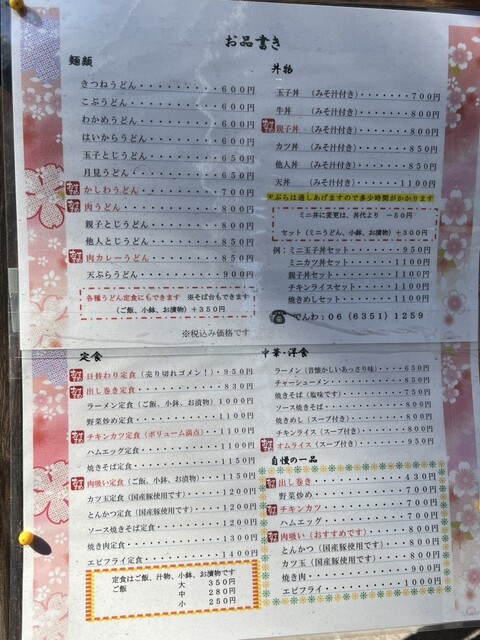 お品書き
麺類
きつねうどん・・・・・・・・・・600円
こぶうどん・・・・・・・・・・・600円
わかめうどん・・・・・・・・・・600円
はいからうどん・・・・・・・・・600円
玉子とじうどん・・・・・・・・・650円
月見うどん・・・・・・・・・・・650円
かしわうどん・・・・・・・・・・700円
肉うどん・・・・・・・・・・・・800円
親子とじうどん・・・・・・・・・850円
他人とじうどん・・・・・・・・・850円
肉カレーうどん・・・・・・・・・850円
天ぷらうどん・・・・・・・・・・900円
各種うどん定食にもできます ※そば台もできます
(ご飯、小鉢、お漬物)+350円
※税込み価格です
丼物
玉子丼 (みそ汁付き)・・・・・・700円
牛丼 (みそ汁付き)・・・・・・・800円
親子丼 (みそ汁付き)・・・・・・800円
カツ丼 (みそ汁付き)・・・・・・850円
他人丼 (みそ汁付き)・・・・・・850円
天丼 (みそ汁付き)・・・・・・・1100円
天ぷらは通しあげますので多少時間がかかります
ミニ丼に変更は、丼代より -50円
セット(ミニうどん、小鉢、お漬物)+300円
例:ミニ玉子丼セット・・・・・・950円
ミニカツ丼セット・・・・・・・・1100円
親子丼セット・・・・・・・・・・1100円
チキンライスセット・・・・・・・1100円
焼きめしセット・・・・・・・・・1100円
でんわ:06(6351)1259
定食
日替わり定食(売り切れゴメン!)・950円
出し巻き定食・・・・・・・・・・830円
ラーメン定食(ご飯、小鉢、お漬物)1000円
野菜炒め定食・・・・・・・・・・1100円
チキンカツ定食(ボリューム満点)・1100円
ハムエッグ定食・・・・・・・・・1100円
焼きそば定食・・・・・・・・・・1150円
肉吸い定食(ご飯、小鉢、お漬物)・1150円
カツ玉定食(国産豚使用です)・・・1200円
とんかつ定食(国産豚使用です)・・1200円
ソース焼きそば定食・・・・・・・1200円
焼き肉定食・・・・・・・・・・・1300円
エビフライ定食・・・・・・・・・1400円
定食はご飯、汁物、小鉢、お漬物です
ご飯 大 350円
中 280円
小 250円
中華・洋食
ラーメン(昔懐かしいあっさり味)・・・・650円
チャーシューメン・・・・・・・・850円
焼きそば(塩味です)・・・・・・・750円
ソース焼きそば・・・・・・・・・800円
焼きめし(スープ付き)・・・・・・800円
チキンライス(スープ付き)・・・・800円
オムライス(スープ付き)・・・・・950円
自慢の一品
出し巻き・・・・・・・・・・・・430円
野菜炒め・・・・・・・・・・・・700円
チキンカツ・・・・・・・・・・・700円
ハムエッグ・・・・・・・・・・・700円
肉吸い(おすすめです)・・・・・・800円
とんかつ(国産豚使用です)・・・・800円
カツ玉(国産豚使用です)・・・・・800円
焼き肉・・・・・・・・・・・・・900円
エビフライ・・・・・・・・・・・1000円